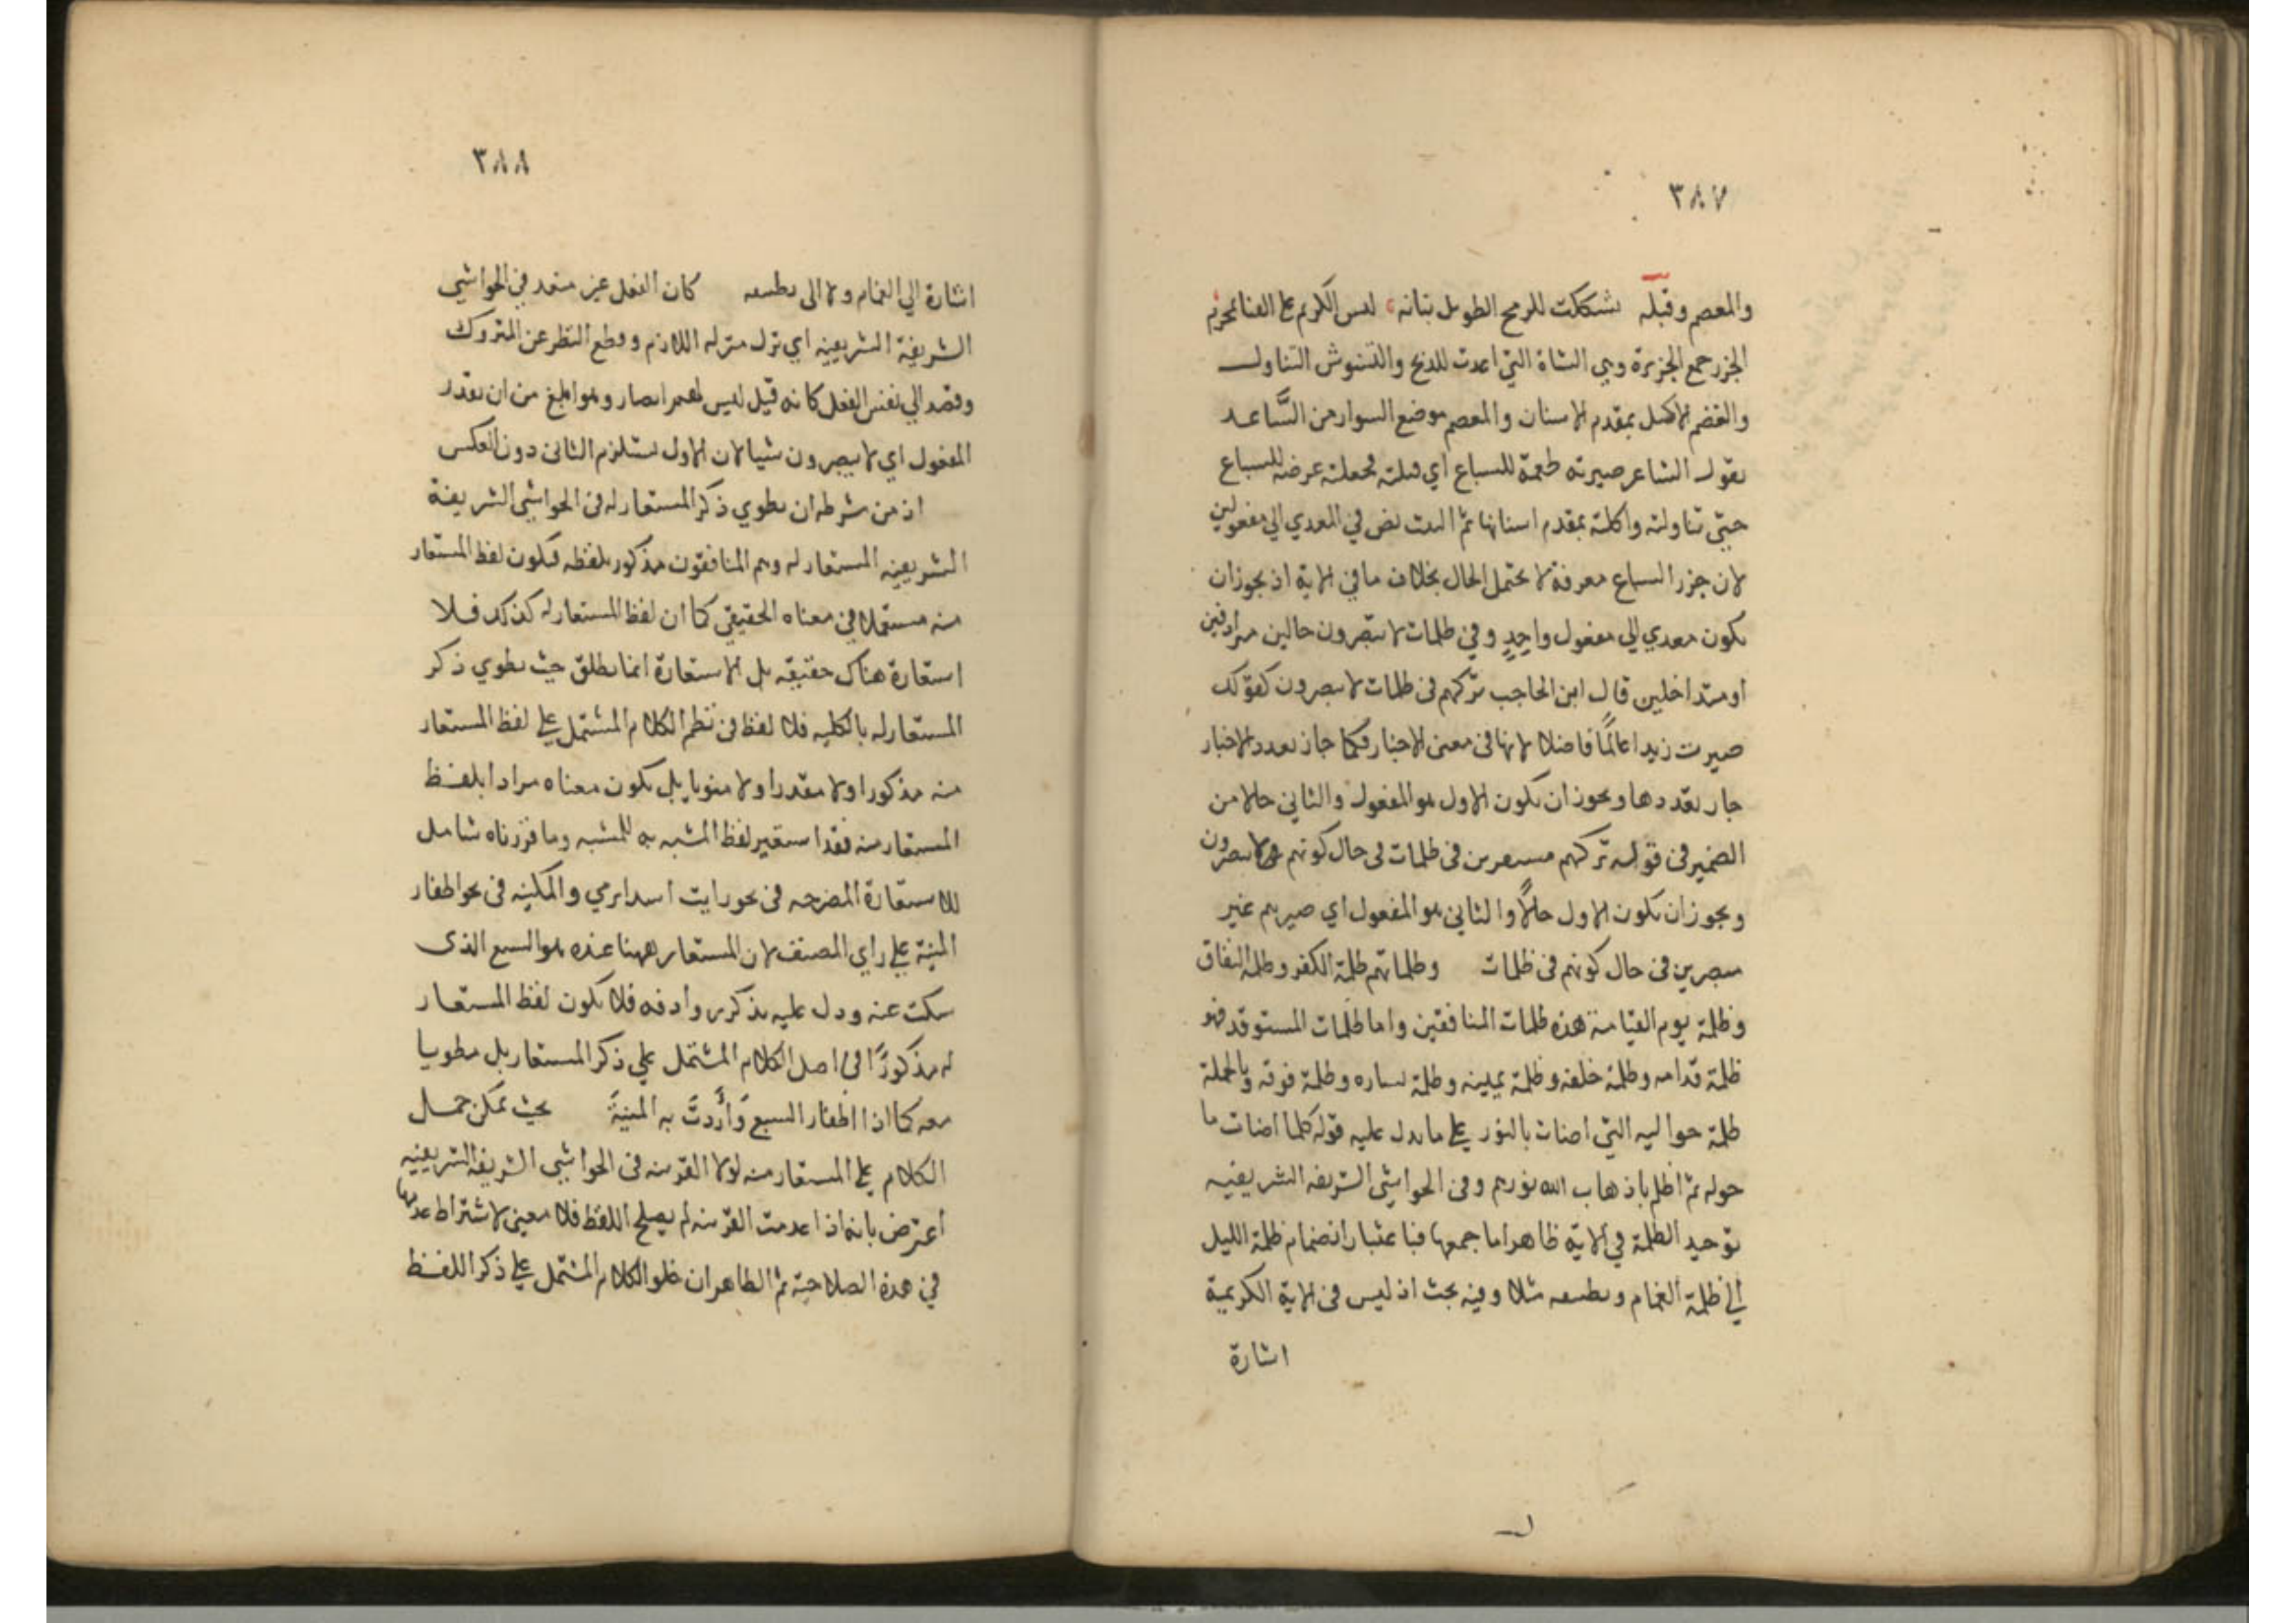 ٣٨٧
والمعصم وقبله فشككت للرمح الطويل بنانه ليس الكريم على القنا بمحرم
الجزر جمع الجزيرة وهي الشاة التي اعدت للذبح والتنوش التناول
والقضم الاكل بمقدم الاسنان والمعصم موضع السوار من السَّاعد
يقول الشاعر صيرته طعمة للسباع اي قتلته فجعلته عرضة للسباع
حتى تناولته واكلته بمقدم اسنانها ثم البيت نص في المعدي الي مفعولين
لان جزر السباع معرفة لا يحتمل الحال بخلاف ما في الاية اذ يجوز ان
يكون معدي الي مفعول واحدٍ وفي ظلمات لا يبصرون حالين مترادفين
او متداخلين قال ابن الحاجب تركهم في ظلمات لا يبصرون كقولك
صيرت زيدا عالمًا فاضلا لانها في معنى الاخبار فكما جاز تعدد الاخبار
جاز تعددها ويجوز ان يكون الاول هو المفعول والثاني حالا من
الضمير في قوله تركهم مستقرين في ظلمات في حال كونهم لا يبصرون
ويجوز ان يكون الاول حالاً والثاني هو المفعول اي صيرهم غير
مبصرين في حال كونهم في ظلمات وظلماتهم ظلمة الكفر وظلمة النفاق
وظلمة يوم القيامة هذه ظلمات المنافقين واما ظلمات المستوقد فهو
ظلمة قدامه وظلمة خلفه وظلمة يمينه وظلمة يساره وظلمة فوقه وبالجملة
ظلمة حواليه التي اضات بالنور على ما يدل عليه قوله كلما اضات ما
حوله ثم اظلم باذهاب الله نورهم وفي الحواشي الشريفة الشريفيه
توحيد الظلمة في الاية ظاهر اما جمعها فباعتبار انضمام ظلمة الليل
الي ظلمة الغمام وتطبيقه مثلا وفيه بحث اذ ليس في الاية الكريمة
اشارة
٣٨٨
اشارة الي الغمام ولا الى تطبيقه كان الفعل غير متعد في الحواشي
الشريفة الشريفيه اي نزل منزلة اللازم وقطع النظر عن المتروك
وقصد الي نفس الفعل كانه قيل ليس لهم ابصار وهو ابلغ من ان يقدر
المفعول اي لا يبصرون شيا لان الاول يستلزم الثاني دون العكس
اذ من شرطه ان يطوي ذكر المستعار له في الحواشي الشريفة
الشريفيه المستعار له وهم المنافقون مذكور بلفظه فيكون لفظ المستعار
منه مستعملا في معناه الحقيقي كما ان لفظ المستعار له كذلك فلا
استعارة هناك حقيقة بل الاستعارة انما يطلق حيث يطوي ذكر
المستعار له بالكليه فلا لفظ في نظم الكلام المشتمل على لفظ المستعار
منه مذكورا ولا مقدرا ولا منويا بل يكون معناه مرادا بلفظ
المستعار منه فقد استعير لفظ المشبه به للمشبه وما قررناه شامل
للاستعارة المصرحه في نحو رايت اسدا يرمي والمكنيه في نحو اظفار
المنية على راي المصنف لان المستعار ههنا عنده هو السبع الذى
سكت عنه ودل عليه بذكر روادفه فلا يكون لفظ المستعار
له مذكورًا في اصل الكلام المشتمل على ذكر المستعار بل مطويا
معه كما اذا اظفار السبع وَأَردتَ به المنيةَ بحيث يمكن حمل
الكلام على المستعار منه لولا القرينه في الحواشي الشريفة الشريفيه
اعترض بانه اذا عدمت القرينه لم يصلح اللفظ فلا معنى لاشتراط عدمها
في هذه الصلاحية ثم الظاهر ان خلو الكلام المشتمل على ذكر اللفظ